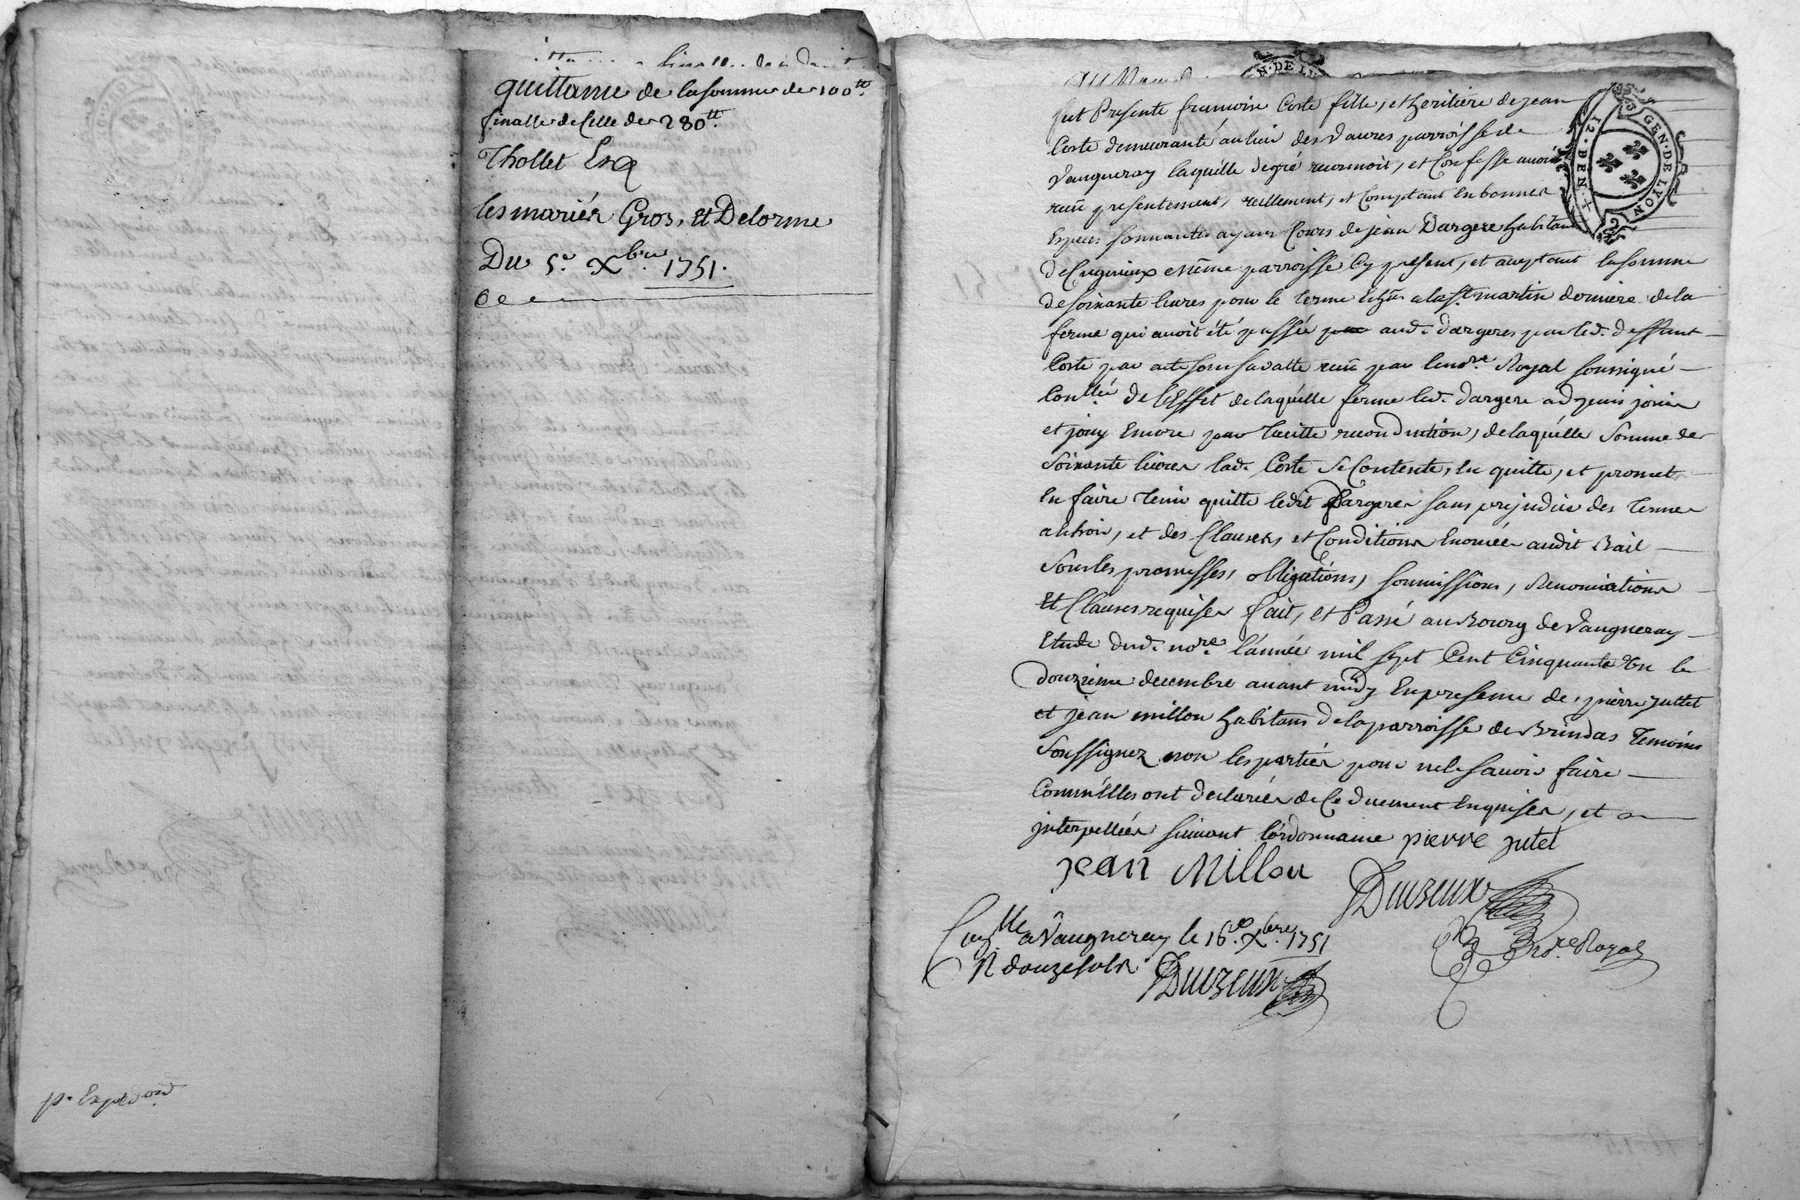 quittance de la somme de 100tt
finalle de Celle de 280tt
Thollet En
les mariés Gros, et Delorme
Du 5e Xbre 1751.
pr Expedon
GEN · DE LYON
12 · DEN
fut Presente francoise Coste fille, et heritiere de jean
Coste demeurante au lieu des Vaures parroisse de
Vaugneray laquélle de gré reconnoit, et Confesse avoir
receu presentement, reellement, et Comptant en bonnes
Especes sonnantes ayant Cours de jean Dargere habitant
de même parroisse Cy présent, et aceptant la somme
de soixante livres pour le terme à la St martin derniere de la
ferme qui avoit été passée aud. dargere par led. deffunt
Coste par acte receu par le nore Royal soussigné
de l'Effet de laquélle ferme led. dargere a depuis jouis
et jouy Encore par tacitte reconduction, de laquélle Somme de
Soixante livres lad. Coste se Contente, en quitte, et promet
En faire tenir quitte ledit Dargere sans prejudice des termes
a Echoir, et des Clauses, et Conditions Enoncées audit Bail
Sous les promesses, obligations, soumissions, Renonciations
Et Clauses requises fait, et Passé au Bourg de Vaugneray
Etude dud. nore l'année mil sept Cent Cinquante Un le
douzieme decembre avant midy En presence de pierre Juttet
et jean millou habitans de la parroisse de Brindas temoins
Soussignez non les parties pour ne le sçavoir faire
Comm'Elles ont declarées de Ce duement Enquises, et
interpellées suivant l'ordonnance pierre jutet
jean Millou
Duizeux
nore Royal
à Vaugneray le 16e Xbre 1751
R douze sols
Duizeux